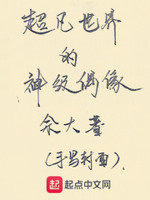 超凡世界
的
神级偶像
佘大耆
(手写封面)
起点中文网